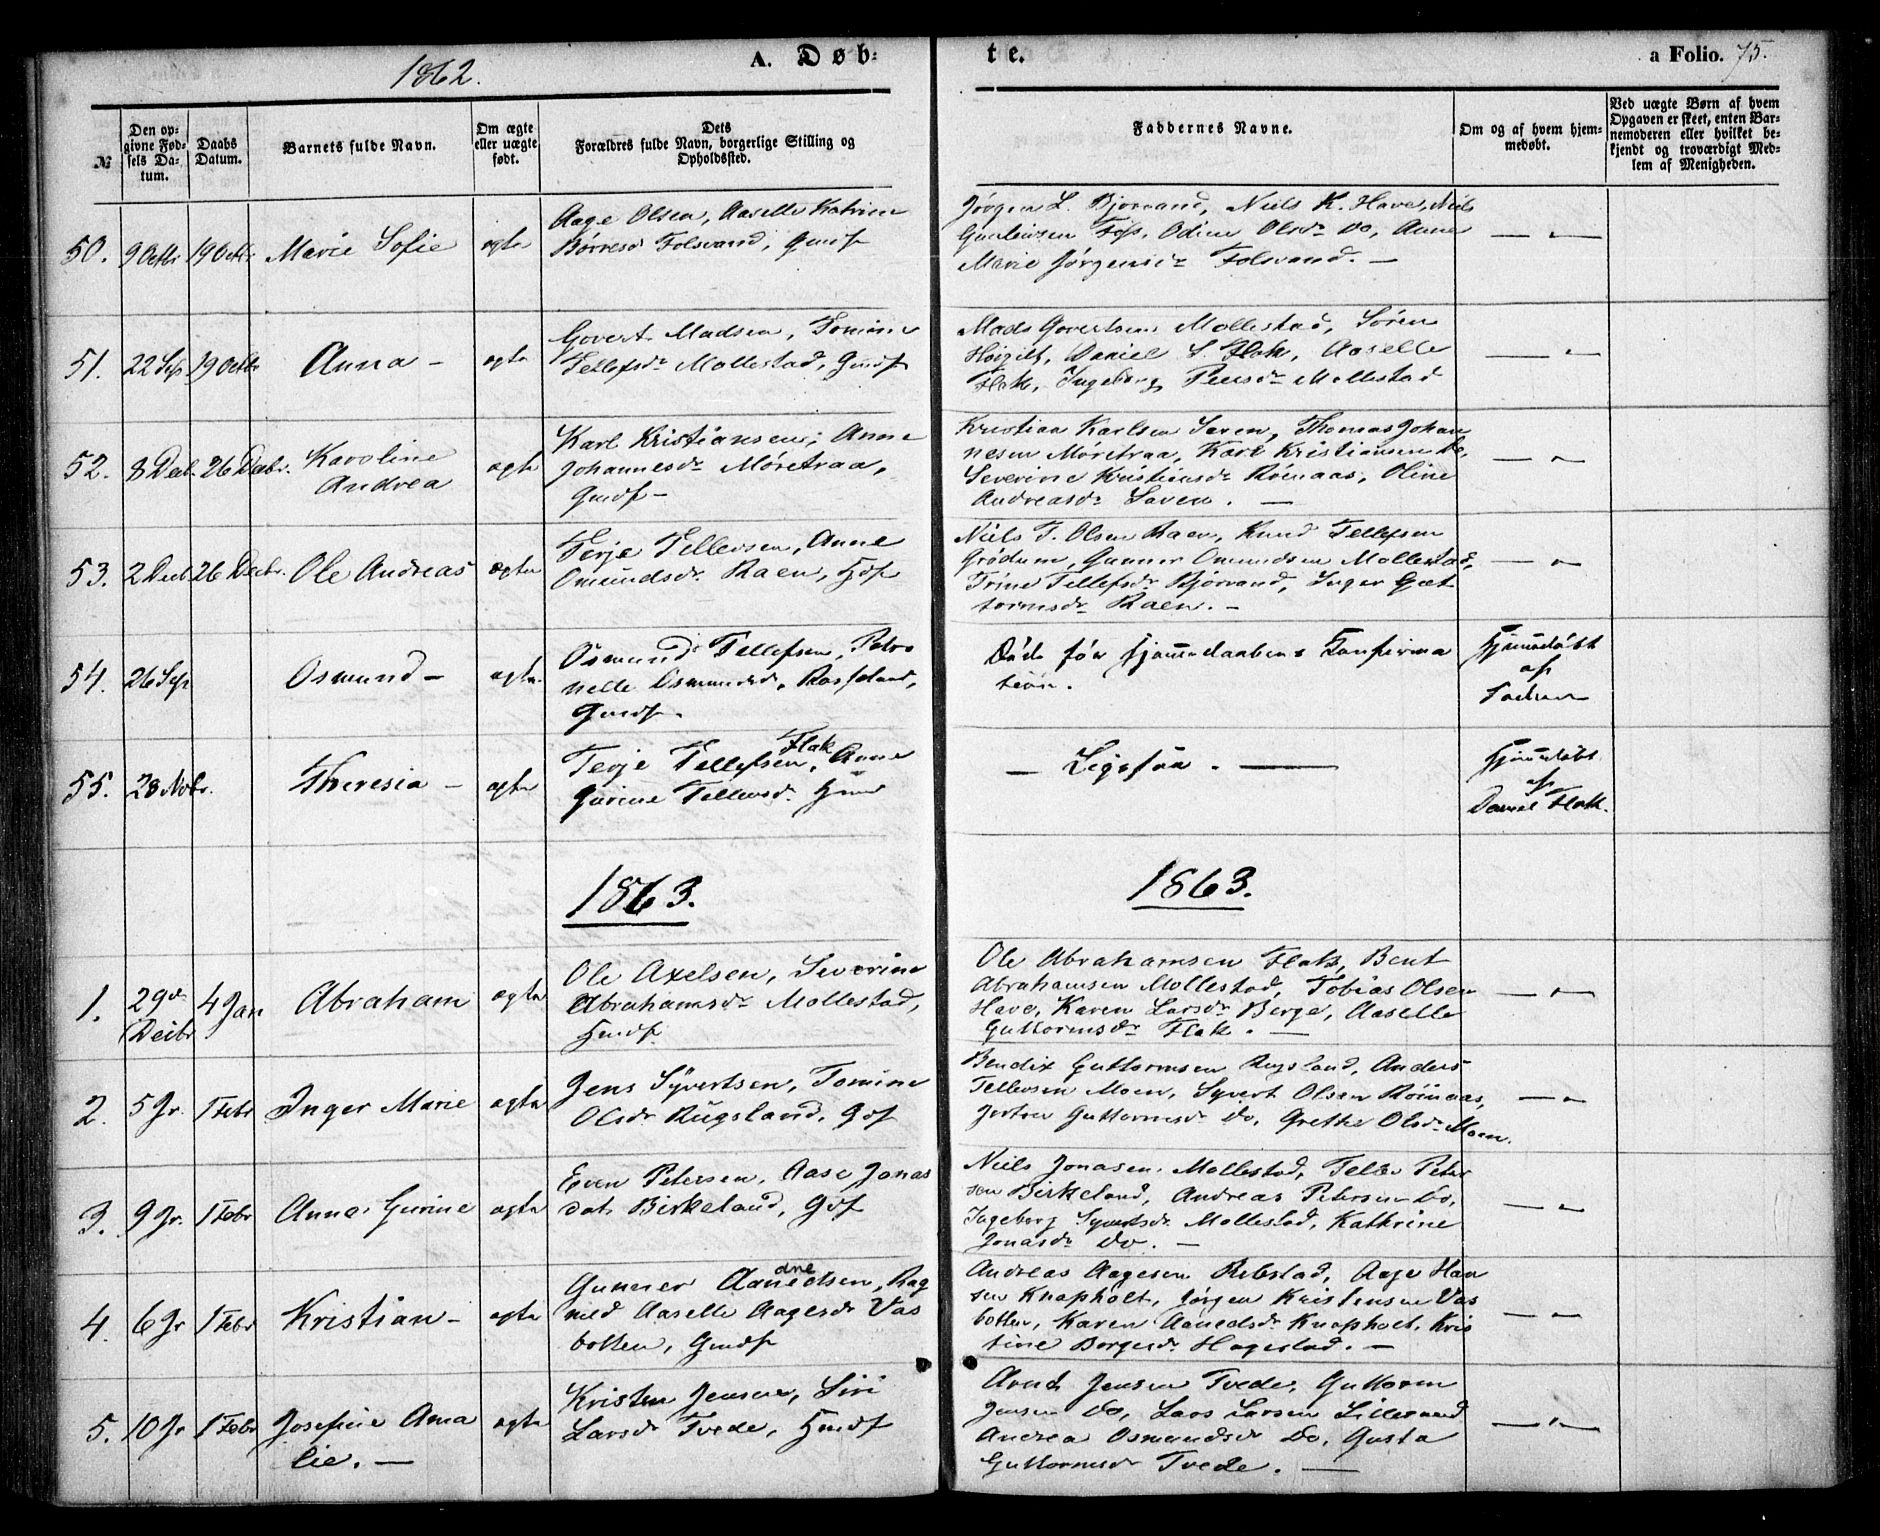 1862.
A. Døb-
te.
a Folio. 75.
№
Den op-
givne Fød-
sels Da-
tum.
Daabs
Datum.
Barnets fulde Navn.
Om ægte
eller uægte
født.
Dets
Forældres fulde Navn, borgerlige Stilling og
Opholdssted.
Faddernes Navne.
Om og af hvem hjem-
medøbt.
Ved uægte Børn af hvem
Opgaven er skeet, enten Bar-
nemoderen eller hvilket be-
kjendt og troværdigt Med-
lem af Menigheden.
50. 9 Octbr 19 Octbr Marie Sofie ægte
Aage Olsen, Aaselle Katrine
Børresdr Folsvand, Gmdf
Jørgen L. Bjorvand, Niels K. Have, Niels
Guntensen Fos, Odine Olsdr Do, Anne
Marie Jørgensdr Folsvand. —
— " —
51. 22 Sep 19 Octbr Anna — ægte
Govert Madsen, Tomine
Tellefsdr Mollestad, Gmdf
Mads Govertsen Mollestad, Søren
Høigilt, Daniel S. Flak, Aaselle
Flak, Ingeborg Peersdr Mollestad
— " —
52. 8 Decb. 26 Decbr. Karoline
Andrea ægte
Karl Kristiansen, Anne
Johannesdr Møretraa,
Gmdf —
Kristian Karlsen Saven, Thomas Johan
nesen Møretraa, Karl Kristiansen Do,
Severine Kristensdr Røinaas, Oline
Andreasdr Saven. —
— " —
53. 2 Decb 26 Decbr. Ole Andreas ægte
Terje Tellevsen, Anne
Omundsdr. Raen, Hdf
Niels T. Olsen Raen, Knud Tellefsen
Grødum, Gunner Omundsen Mollestad,
Trine Tellefsdr Bjorvand, Inger Gut
tormsdr Raen. —
— " —
54. 26 Sep Osmund — ægte.
Osmund Tellefsen, Petro
nelle Osmundsd. Rosseland,
Gmdf.
Død før Hjemmedaabens Konfirma
tion.
Hjemmedøbt
af
55. 28 Novbr. Theresia — ægte
Terje Tellefsen Flak, Anne
Gurine Tellevsdr. Hmd
— Ligesaa. —
Hjemmedøbt
af
Daniel Flak.
1863.
1863.
1. 29de
Decbr 4 Jan Abraham ægte
Ole Axelsen, Severine
Abrahamsdr Mollestad,
Hmdf
Ole Abrahamsen Flak, Bent
Abrahamsen Mollestad, Tobias Olsen
Have, Karen Larsdr Berge, Aaselle
Guttormsdr Flak. —
— " —
2. 5 Jr. 1 Febr Inger Marie ægte
Jens Syvertsen, Tomine
Olsdr Rugsland, Gdf
Bendix Guttormsen Rugsland, Anders
Tellevsen Moen, Syvert Olsen Røinaas,
Guttormsdr Do, Grethe Olsdr Moen.
— " —
3. 9 Jr. 1 Febr Anne Gurine ægte
Even Petersen, Aase Jonas
datr Birkeland, Gdf
Niels Jonasen Mollestad, Tellev Peter
sen Birkeland, Andreas Petersen Do,
Ingeborg Syvertsdr Mollestad, Kathrine
Jonasdr Do. —
— " —
4. 6 Jr 1 Febr Kristian — ægte
dne
Gunner Aanedsen, Rag
nild Aaselle Aagesdr Vas
botten, Gmdf
Andreas Aagesen Rebstad, Aage Han
sen Knapholt, Jørgen Kristensen Vas
botten, Karen Aanedsdr Knapholt, Kris
tine Børgesdr Hagestad. —
— " —
5. 10 Jr 1 Febr Josefine Ama
lie. — ægte
Kristen Jensen, Siri
Larsdr Tvede, Hmdf
Arnt Jensen Tvede, Guttorm
Jensen Do, Lars Larsen Lillesand
Andrea Osmundsdr Do, Gusta
Guttormsdr Tvede. —
— " —